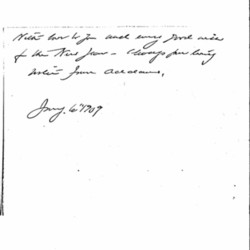 With love to you and every good wish
for the New Year – Always your loving
sister Jane Addams.
Jany. 6" 1909